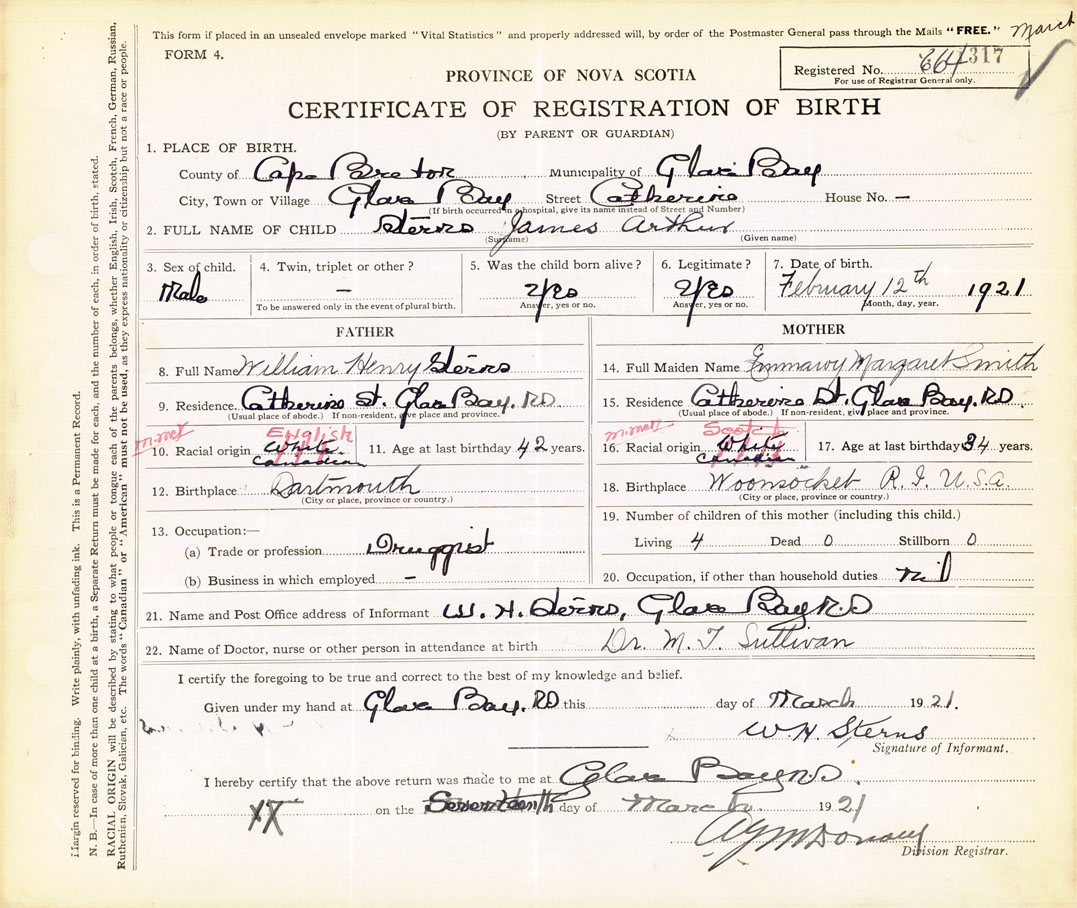 This form if placed in an unsealed envelope marked "Vital Statistics" and properly addressed will, by order of the Postmaster General pass through the Mails "FREE." March
FORM 4.
Registered No. 664 317
For use of Registrar General only.
PROVINCE OF NOVA SCOTIA
CERTIFICATE OF REGISTRATION OF BIRTH
(BY PARENT OR GUARDIAN)
1. PLACE OF BIRTH.
County of Cape Breton Municipality of Glace Bay
City, Town or Village Glace Bay Street Catherine House No. —
(If birth occurred in a hospital, give its name instead of Street and Number)
2. FULL NAME OF CHILD Sterns James Arthur
(Surname) (Given name)
3. Sex of child. 4. Twin, triplet or other? 5. Was the child born alive? 6. Legitimate? 7. Date of birth.
Male — Yes Yes February 12th 1921
To be answered only in the event of plural birth. Answer, yes or no. Answer, yes or no. Month, day, year.
FATHER
8. Full Name William Henry Sterns
9. Residence Catherine St. Glace Bay.
(Usual place of abode.) If non-resident, give place and province.
English
10. Racial origin White Canadian 11. Age at last birthday 42 years.
12. Birthplace Dartmouth
(City or place, province or country.)
13. Occupation:—
(a) Trade or profession Druggist
(b) Business in which employed —
MOTHER
14. Full Maiden Name Margaret Smith
15. Residence Catherine St. Glace Bay.
(Usual place of abode.) If non-resident, give place and province.
Scotch
16. Racial origin White Canadian 17. Age at last birthday 34 years.
18. Birthplace Woonsocket R.I. U.S.A.
(City or place, province or country.)
19. Number of children of this mother (including this child.)
Living 4 Dead 0 Stillborn 0
20. Occupation, if other than household duties nil
21. Name and Post Office address of Informant W. H. Sterns, Glace Bay N.S
22. Name of Doctor, nurse or other person in attendance at birth Dr. M. T. Sullivan
I certify the foregoing to be true and correct to the best of my knowledge and belief.
Given under my hand at Glace Bay. this day of March 1921.
W H Sterns
Signature of Informant.
I hereby certify that the above return was made to me at Glace Bay N.S.
XX on the Seventeenth day of March 1921
Division Registrar.
Margin reserved for binding. Write plainly, with unfading ink. This is a Permanent Record.
N. B.—In case of more than one child at a birth, a Separate Return must be made for each, and the number of each, in order of birth, stated.
RACIAL ORIGIN will be described by stating to what people or tongue each of the parents belongs, whether English, Irish, Scotch, French, German, Russian,
Ruthenian, Slovak, Galician, etc. The words "Canadian" or "American" must not be used, as they express nationality or citizenship but not a race or people.